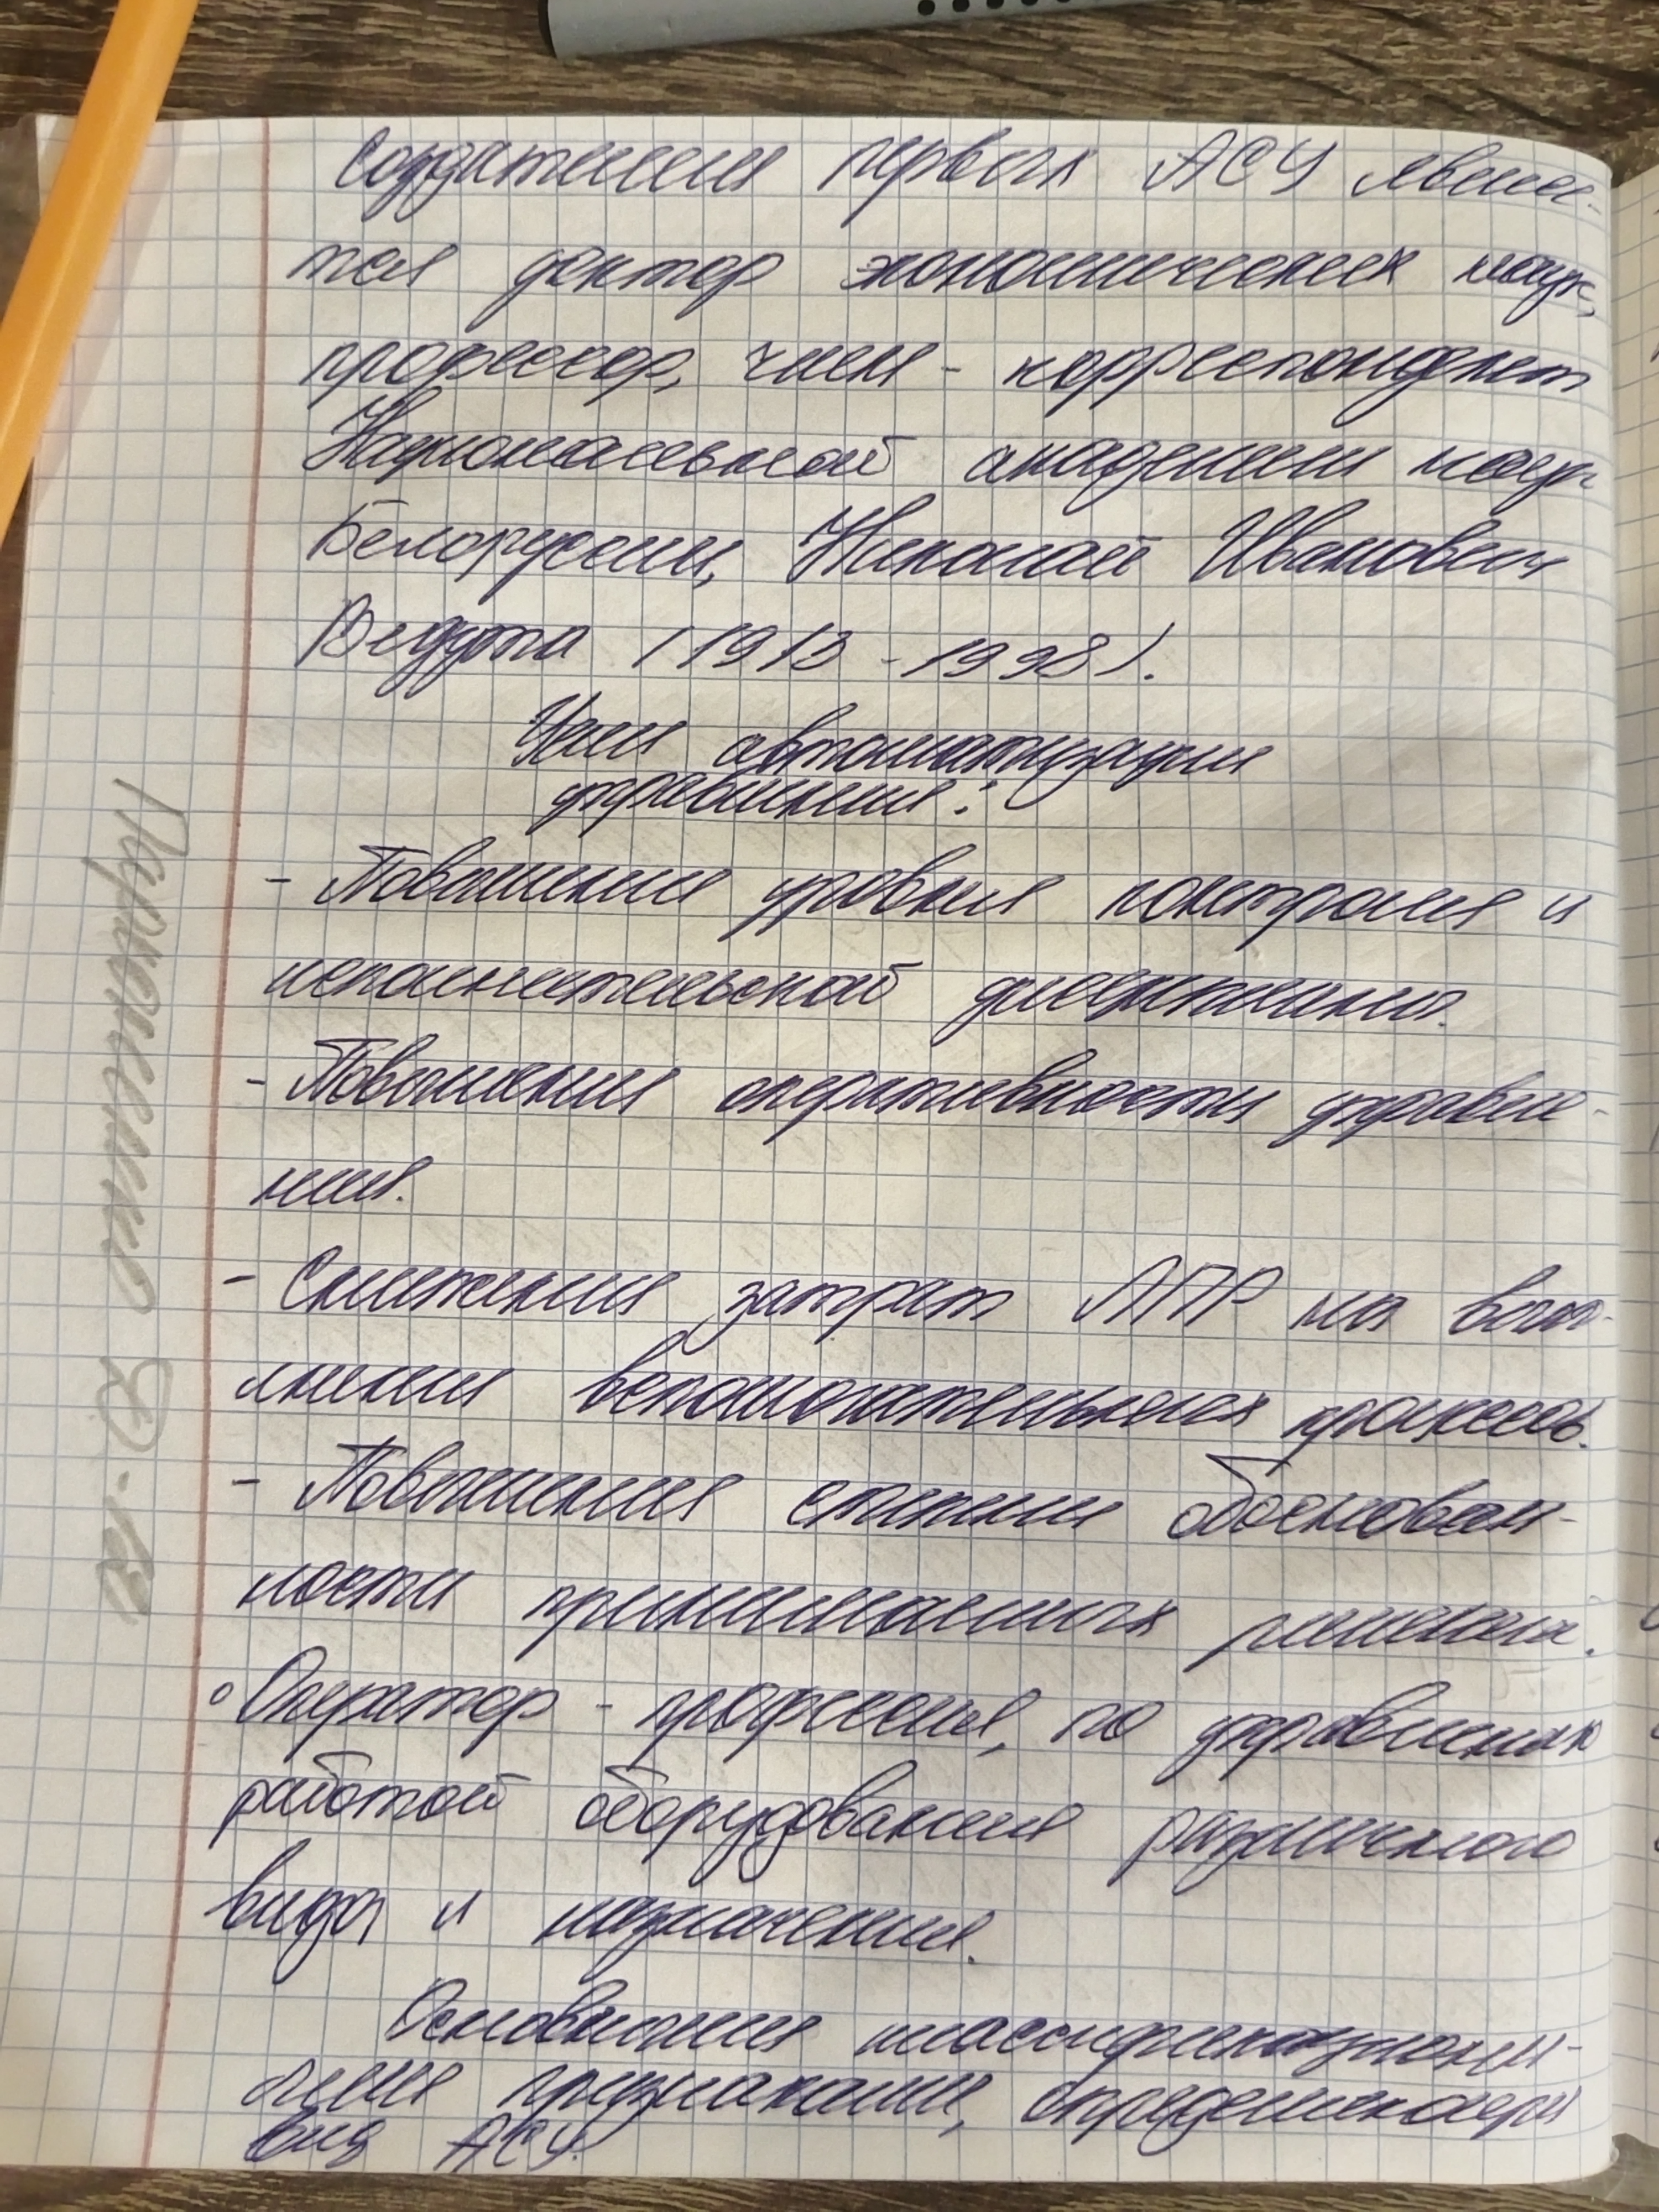 Создателем первых АСУ являе-
тся доктор экономических наук,
профессор, член - корреспондент
Национальной академии наук
Белоруссии, Николай Иванович
Ведута (1913 - 1998).
Цели автоматизации
управления:
- Повышения уровня контроля и
исполнительской дисциплины.
- Повышения оперативности управле-
ния.
- Снижения затрат ЛПР на вып-
лнении вспомогательных процессов.
- Повышения степени обоснован-
ности принимаемых решений.
° Оператор - профессия, по управлению
работой оборудования различного
вида и назначения.
Основными классификационн-
ыми признаками, определяющ
вид АСУ.
ЭО-120